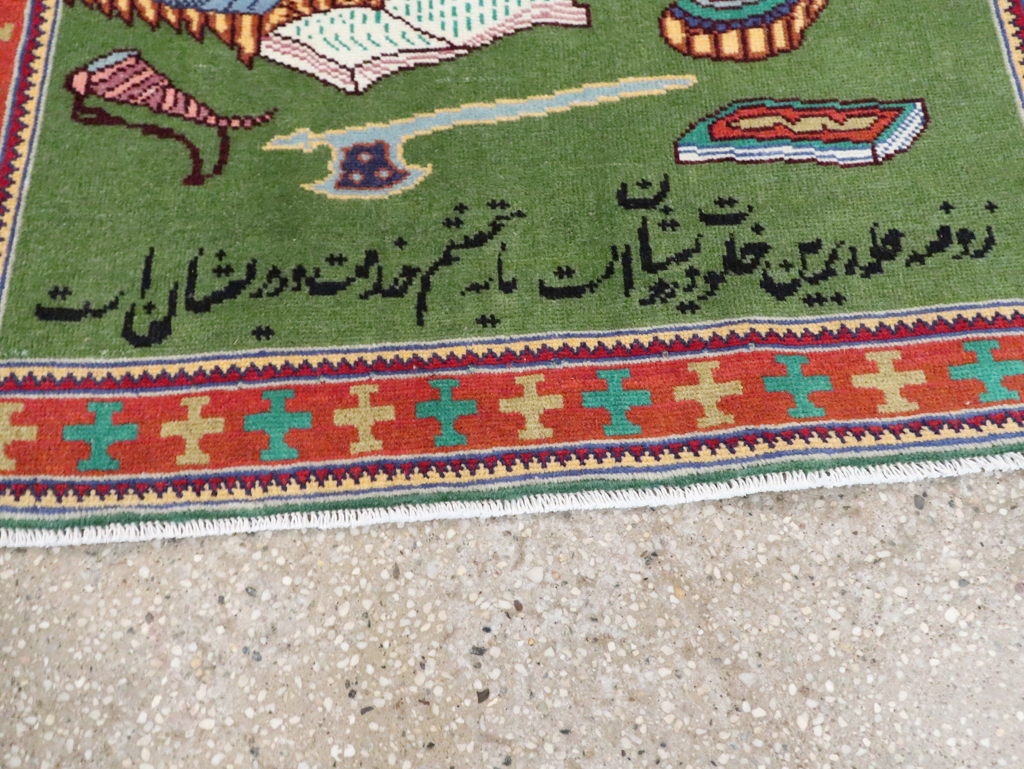 روضه خلد برین خلوت درویشان است مایه محتشم خدمت درویشان است